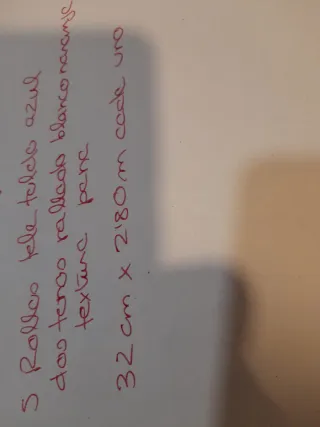 5 Rollos tela toldo azul
dos tonos rallado blanco naranja
textura para
32 cm x 2'80 m cada uno